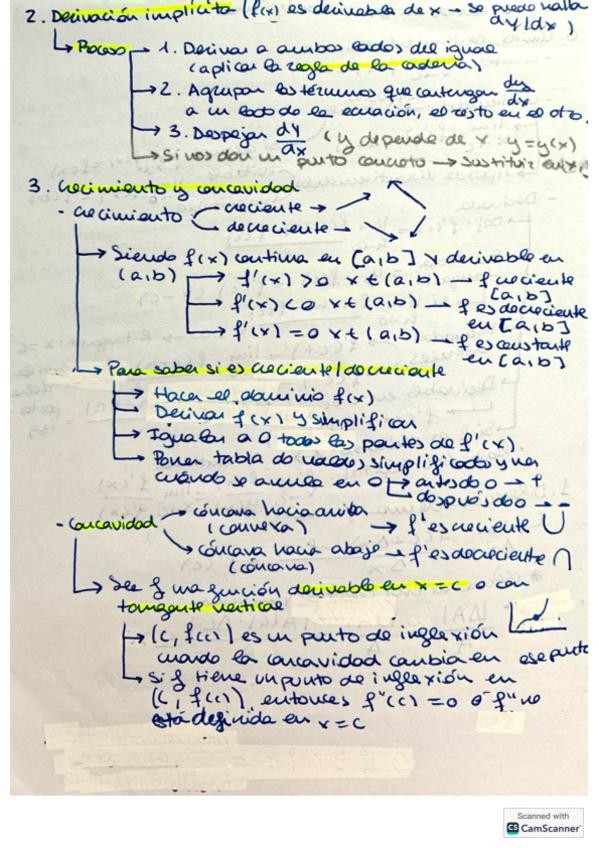 2. Derivación implícita (f(x) es derivable de x → se puede halla
dy/dx)
↳ Proceso → 1. Derivar a ambos lados del igual
(aplicar la regla de la cadena)
→ 2. Agrupar los términos que contengan dy/dx
a un lado de la ecuación, el resto en el otro.
→ 3. Despejar dy/dx (y depende de x y=y(x)
→ Si nos dan un punto concreto → sustituir en(x,
3. Crecimiento y concavidad
- Crecimiento creciente →
decreciente →
→ Siendo f(x) continua en [a,b] y derivable en
(a,b) → f'(x) > 0 x∈(a,b) → f creciente
[a,b]
→ f'(x) < 0 x∈(a,b) → f es decreciente
en [a,b]
→ f'(x) = 0 x∈(a,b) → f es constante
en [a,b]
→ Para saber si es creciente/decreciente
→ Hacer el dominio f(x)
→ Derivar f(x) y simplificar
→ Igualar a 0 todas las partes de f'(x).
→ Poner tabla do simplificado y
cuándo se anula en 0 → antes do 0 → +
→ después do 0 → -
- Concavidad → cóncava hacia arriba
(convexa) → f' es creciente ∪
→ cóncava hacia abajo → f' es decreciente ∩
(cóncava)
→ Sea f una función derivable en x = c o con
tangente vertical
→ (c, f(c)) es un punto de inflexión
cuando la concavidad cambia en ese punto
→ Si f tiene un punto de inflexión en
(c, f(c)), entonces f''(c) = 0 o f'' no
está definida en x = c
Scanned with
CS CamScanner